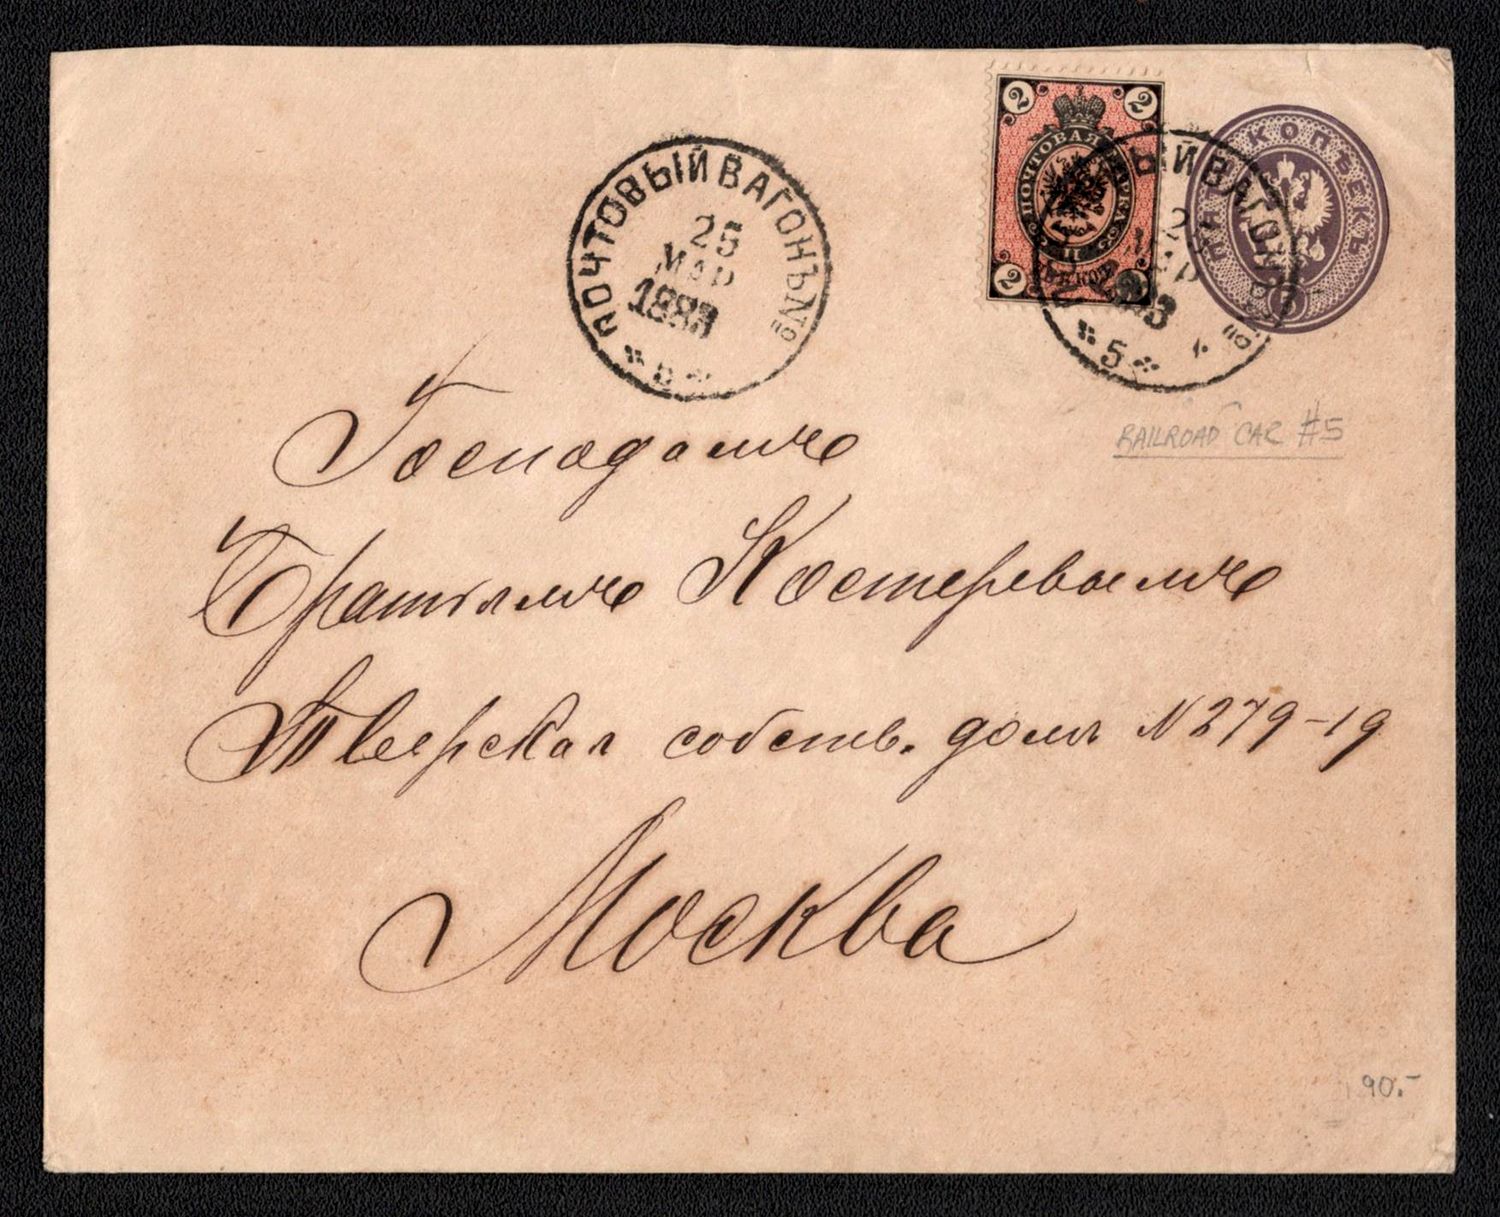 ПОЧТОВЫЙ ВАГОНЪ №
25
МАР
1883
5
2 2
ПОЧТОВАЯ МАРКА
2 2
ПЯТЬ КОПѢЕКЪ
5
ЫЙ ВАГОН
2
МАР
5
RAILROAD CAR #5
Господамъ
Братьямъ Костеревымъ
Тверская собств. домъ N 279-19
Москва
90.-